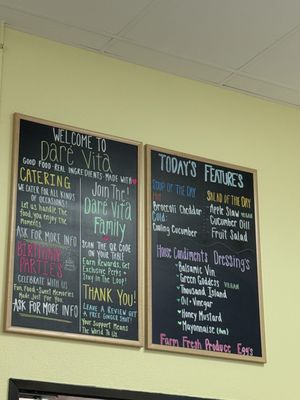 WELCOME TO
Daré Vita
GOOD FOOD·REAL INGREDIENTS·MADE WITH
CATERING
WE CATER FOR ALL KINDS
OF OCCASIONS!
Let us handle the
food, you enjoy the
moments
ASK FOR MORE INFO
BIRTHDAY
PARTIES
CELEBRATE WITH US
Fun, Food, Sweet Memories
Made Just For You
ASK FOR MORE INFO
Join The
Daré Vita
Family
SCAN THE QR CODE
ON YOUR TABLE
Earn Rewards, Get
Exclusive Perks &
Stay In The Loop!
THANK YOU!
LEAVE A REVIEW GET
A FREE GINGER SHOT!
Your Support Means
The World To Us
TODAY'S FEATURE'S
SOUP OF THE DAY
Hot:
Broccoli Cheddar
Cold:
Cooling Cucumber
SALAD OF THE DAY
Apple Slaw VEGAN
Cucumber Dill
Fruit Salad
House Condiments Dressing's
Balsamic Vin
Green Goddess VEGAN
Thousand Island
Oil + Vinegar
Honey Mustard
Mayonnaise
Farm Fresh Produce & Egg's